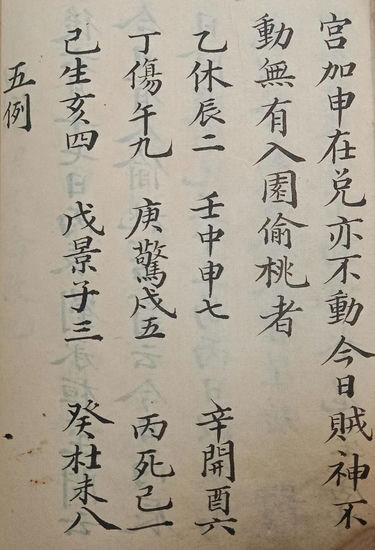 宮加申在兌亦不動今日賊神不
動無有入園偷桃者
乙休辰二　壬中申七　辛開酉六
丁傷午九　庚驚戍五　丙死巳一
己生亥四　戊景子三　癸杜未八
五例